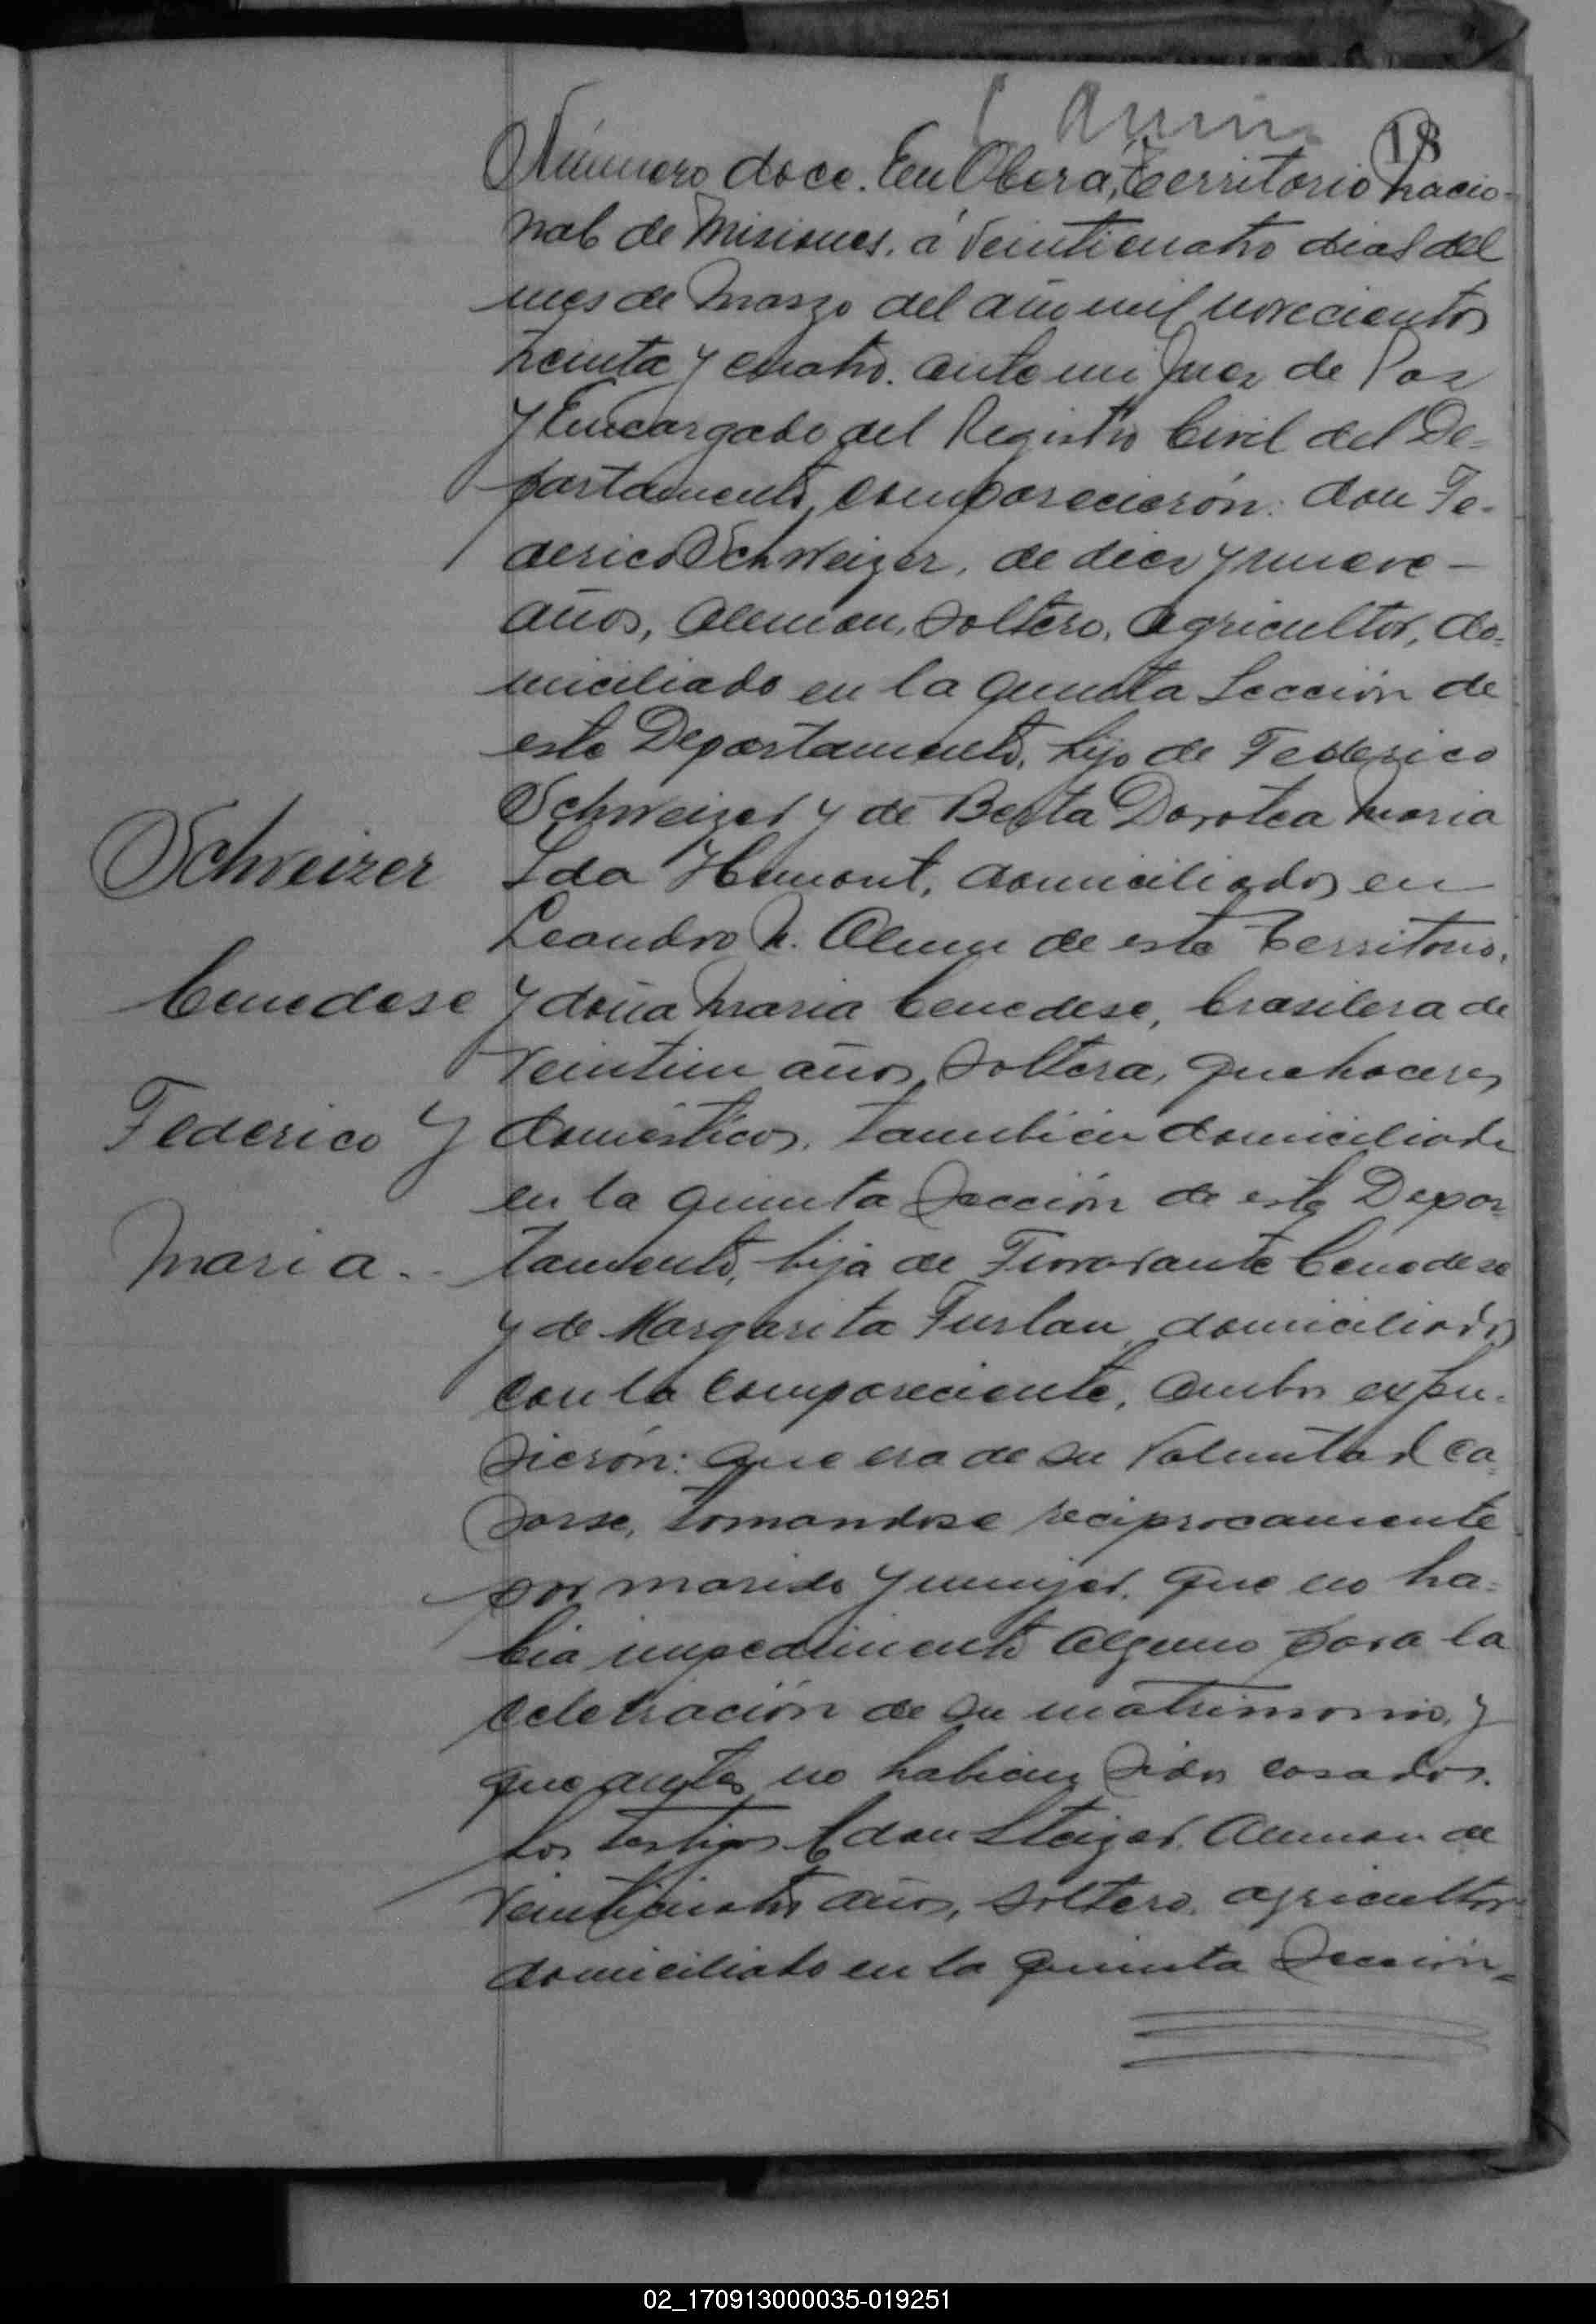 18
Número doce. En Obera, Territorio Nacio-
nal de Misiones, á Veinticuatro dias del
mes de Marzo del año mil novecientos
treinta y cuatro. ante mi Juez de Paz
y Encargado del Registro Civil del De-
partamento, comparecierón: don Fe-
derico Schweizer, de diez y nueve -
años, Aleman, Soltero, Agricultor, do-
miciliado en la quinta Sección de
este Departamento, hijo de Federico
Schweizer y de Berta Dorotea Maria
Ida Humont, domiciliados en
Leandro N. Alem de este Territorio,
y doña Maria Cenedese, brasilera de
Veintiun años, Soltera, quehaceres
domésticos, tambien domiciliada
en la quinta Sección de este Depar-
tamento, hija de Fioravante Cenedese
y de Margarita Furlan, domiciliados
con la compareciente, Ambos expu-
sierón: que era de su Voluntad ca-
sarse, tomandose reciprocamente
por marido y mujer, que no ha-
bia impedimento Alguno para la
celebración de su matrimonio, y
que antes no habian Sidos casados.
Los testigos don Steiger, Aleman de
Veinticuatro años, Soltero, agricultor
domiciliado en la quinta Sección-
Schweizer
Cenedese
Federico y
Maria.
02_170913000035-019251